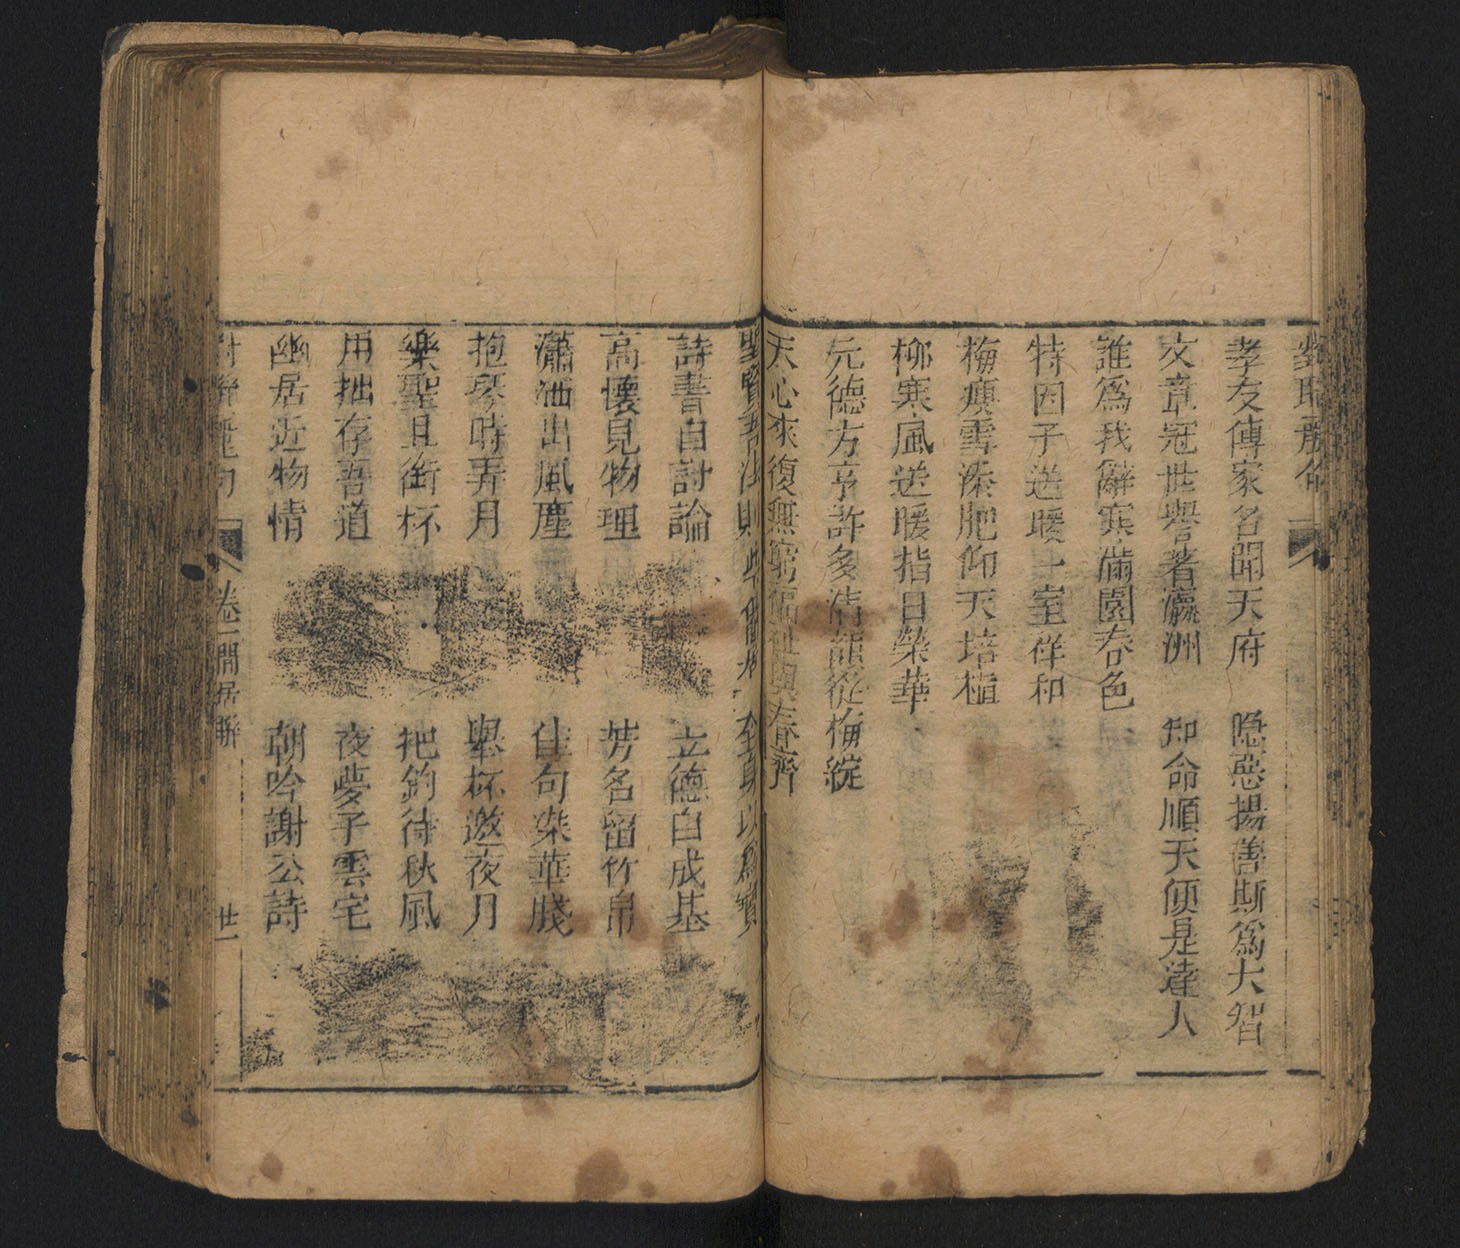 孝友傳家名聞天府 隐惡揚善斯爲大智
文章冠世譽著瀛洲 知命順天便是達人
誰爲我辭寒滿園春色
特因子送暖一室徉和
梅瘦雪添肥仰天培植
柳寒風送暖指日榮華
元德方亨許多清韻從梅綻
天心來復無窮 春齊
聖賢 法則 全身以爲寶
詩書自討論 立德自成基
高懷見物理 芳名留竹帛
瀟洒出風塵 佳句染華牋
抱琴時弄月 舉杯邀夜月
樂聖且銜杯 把釣待秋風
用拙存吾道 夜夢子雲宅
幽居近物情 朝吟謝公詩
卷一 閒居聯 廿一